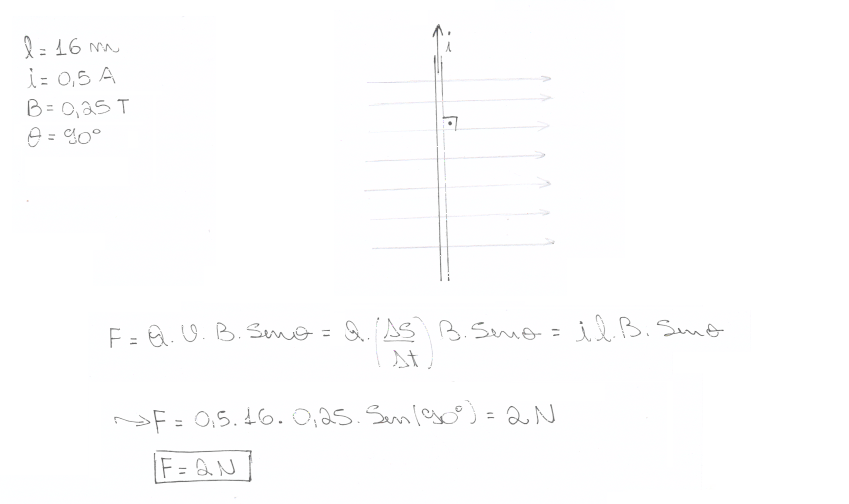 l = 16 m
i = 0,5 A
B = 0,25 T
θ = 90°
i
F = Q. V. B. Senθ = Q. (ΔS/Δt) B. Senθ = i l. B. Senθ
~> F = 0,5. 16. 0,25. Sen(90°) = 2 N
F = 2 N